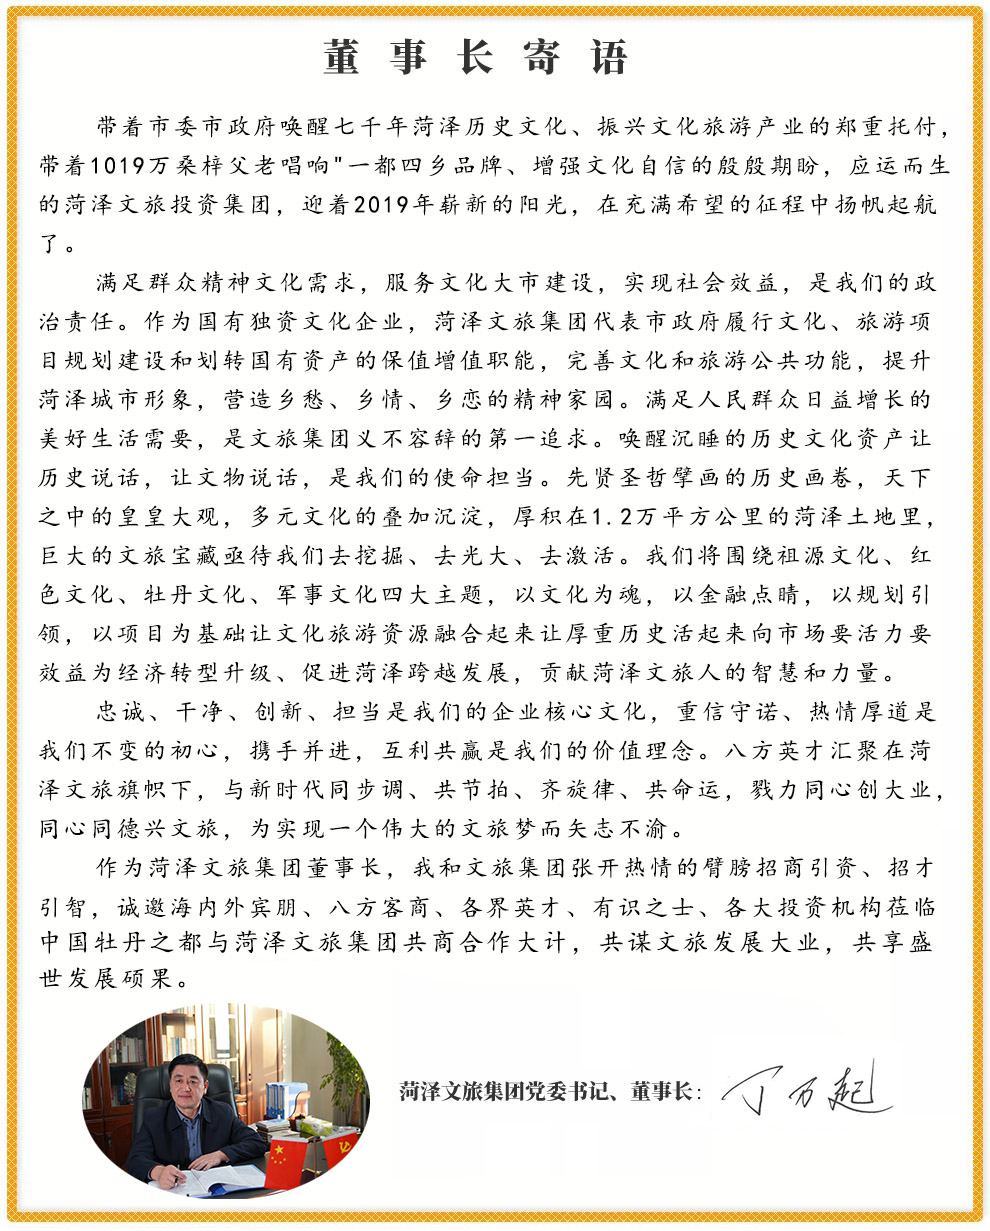 董事长寄语
带着市委市政府唤醒七千年菏泽历史文化、振兴文化旅游产业的郑重托付，
带着1019万桑梓父老唱响"一都四乡品牌、增强文化自信的殷殷期盼，应运而生
的菏泽文旅投资集团，迎着2019年崭新的阳光，在充满希望的征程中扬帆起航
了。
满足群众精神文化需求，服务文化大市建设，实现社会效益，是我们的政
治责任。作为国有独资文化企业，菏泽文旅集团代表市政府履行文化、旅游项
目规划建设和划转国有资产的保值增值职能，完善文化和旅游公共功能，提升
菏泽城市形象，营造乡愁、乡情、乡恋的精神家园。满足人民群众日益增长的
美好生活需要，是文旅集团义不容辞的第一追求。唤醒沉睡的历史文化资产让
历史说话，让文物说话，是我们的使命担当。先贤圣哲擘画的历史画卷，天下
之中的皇皇大观，多元文化的叠加沉淀，厚积在1.2万平方公里的菏泽土地里，
巨大的文旅宝藏亟待我们去挖掘、去光大、去激活。我们将围绕祖源文化、红
色文化、牡丹文化、军事文化四大主题，以文化为魂，以金融点睛，以规划引
领，以项目为基础让文化旅游资源融合起来让厚重历史活起来向市场要活力要
效益为经济转型升级、促进菏泽跨越发展，贡献菏泽文旅人的智慧和力量。
忠诚、干净、创新、担当是我们的企业核心文化，重信守诺、热情厚道是
我们不变的初心，携手并进，互利共赢是我们的价值理念。八方英才汇聚在菏
泽文旅旗帜下，与新时代同步调、共节拍、齐旋律、共命运，戮力同心创大业，
同心同德兴文旅，为实现一个伟大的文旅梦而矢志不渝。
作为菏泽文旅集团董事长，我和文旅集团张开热情的臂膀招商引资、招才
引智，诚邀海内外宾朋、八方客商、各界英才、有识之士、各大投资机构莅临
中国牡丹之都与菏泽文旅集团共商合作大计，共谋文旅发展大业，共享盛
世发展硕果。
菏泽文旅集团党委书记、董事长：丁万起